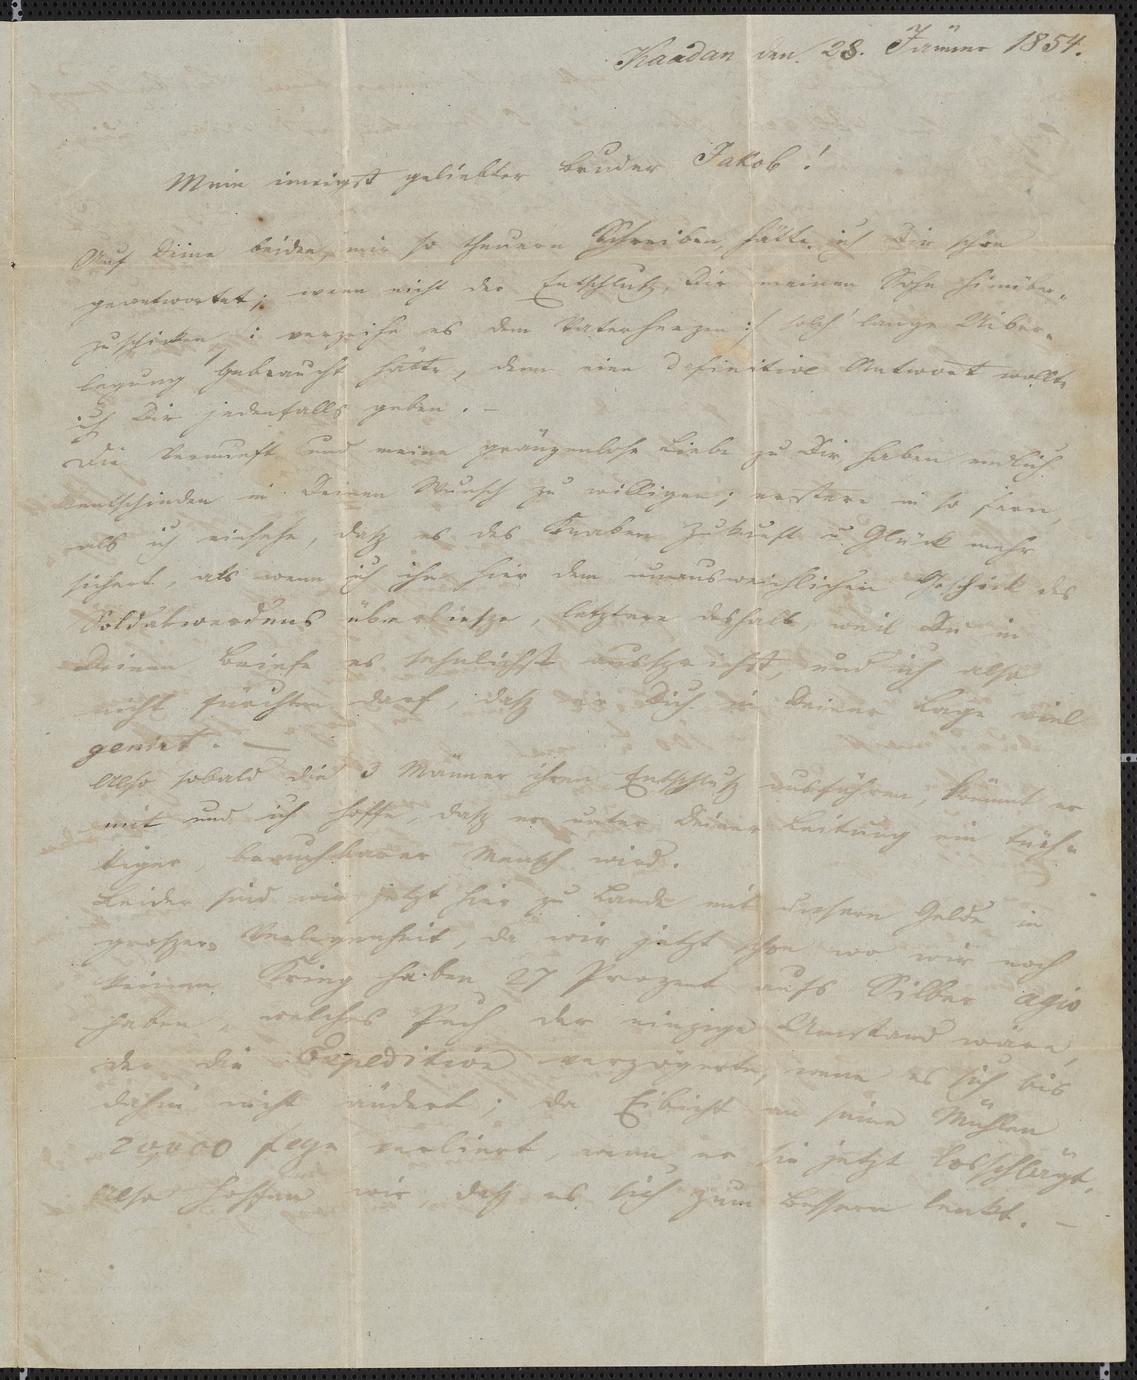 Kaadan den 28. Jänner 1854.
Mein innigst geliebter Bruder Jakob!
Auf Deine beiden, mir so theuern Schreiben, hätte ich Dir schon
geantwortet; wenn nicht der Entschluß, Dir meinen Sohn hinüber-
zuschicken /: verzeihe es dem Vaterherzen :/ solch' lange Uiber-
legung gebraucht hätte, denn eine definitive Antwort wollte
ich Dir jedenfalls geben. –
Die Vernunft und meine gränzenlose Liebe zu Dir haben endlich
entschieden in Deinen Wunsch zu willigen; erstere in so fern,
als ich einsehe, daß es des Knaben Zukunft u Glück mehr
sichert, als wenn ich ihn hier dem unausweichlichen Geschick des
Soldatwerdens überließe, letztere deshalb, weil Du in
Deinem Briefe es sehnlichst aussprichst, und ich also
nicht fürchten darf, daß er Dich in Deiner Lage viel
genirt. —
Also sobald die 3 Männer ihren Entschluß ausführen, kömmt er
mit und ich hoffe, daß er unter Deiner Leitung ein tüch-
tiger, brauchbarer Mensch wird.
Leider sind wir jetzt hier zu Lande mit unserm Gelde in
großer Verlegenheit, da wir jetzt schon wo wir noch
keinen Krieg haben 27 Prozent aufs Silber agio
haben, welches Pech der einzige Umstand wäre,
der die Expedition verzögerte, wenn es sich bis
dahin nicht ändert; da Eibicht an seine Mühlen
20000 verliert, wenn er sie jetzt losschlägt.
Also hoffen wir, daß es sich zum Bessern lenkt. –